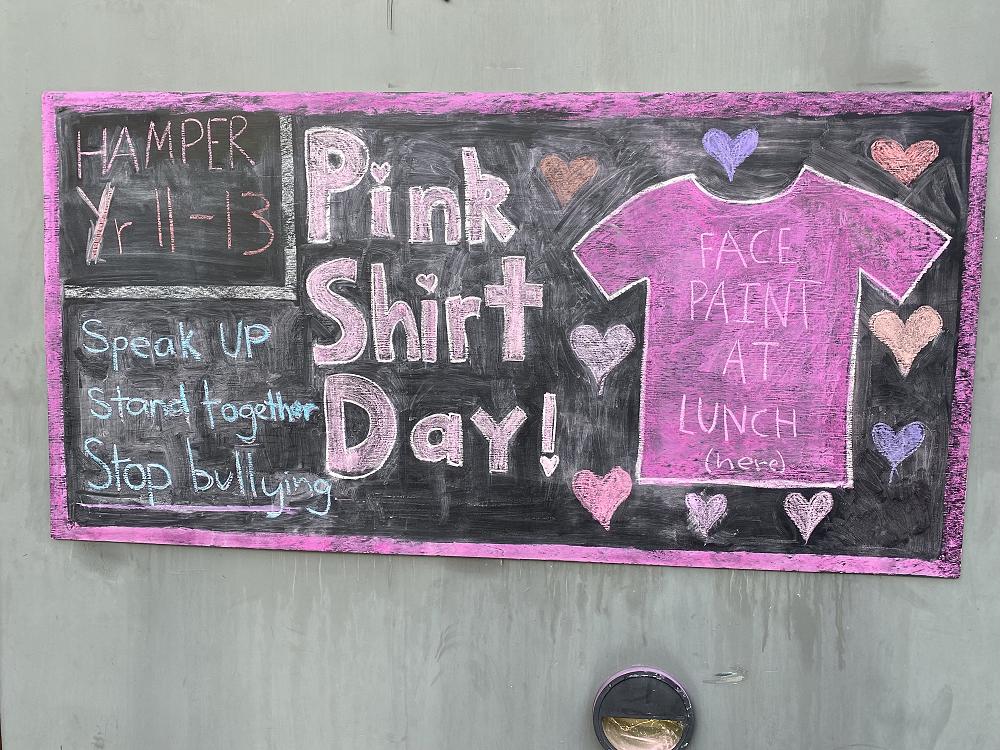 HAMPER
Yr 11-13
Speak UP
Stand together
Stop bullying
Pink
Shirt
Day!
FACE
PAINT
AT
LUNCH
(here)